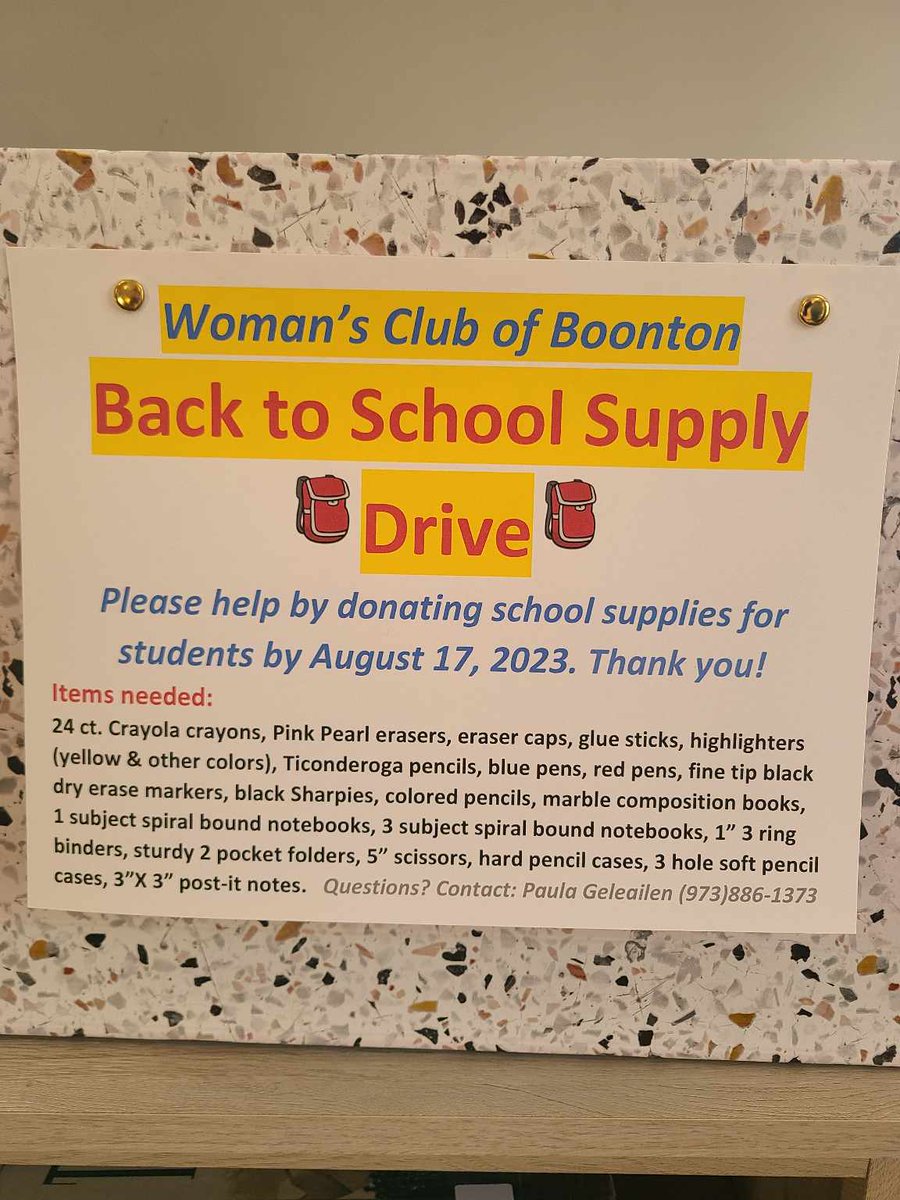 Woman's Club of Boonton
Back to School Supply
Drive
Please help by donating school supplies for
students by August 17, 2023. Thank you!
Items needed:
24 ct. Crayola crayons, Pink Pearl erasers, eraser caps, glue sticks, highlighters
(yellow & other colors), Ticonderoga pencils, blue pens, red pens, fine tip black
dry erase markers, black Sharpies, colored pencils, marble composition books,
1 subject spiral bound notebooks, 3 subject spiral bound notebooks, 1" 3 ring
binders, sturdy 2 pocket folders, 5" scissors, hard pencil cases, 3 hole soft pencil
cases, 3"X 3" post-it notes. Questions? Contact: Paula Geleailen (973)886-1373